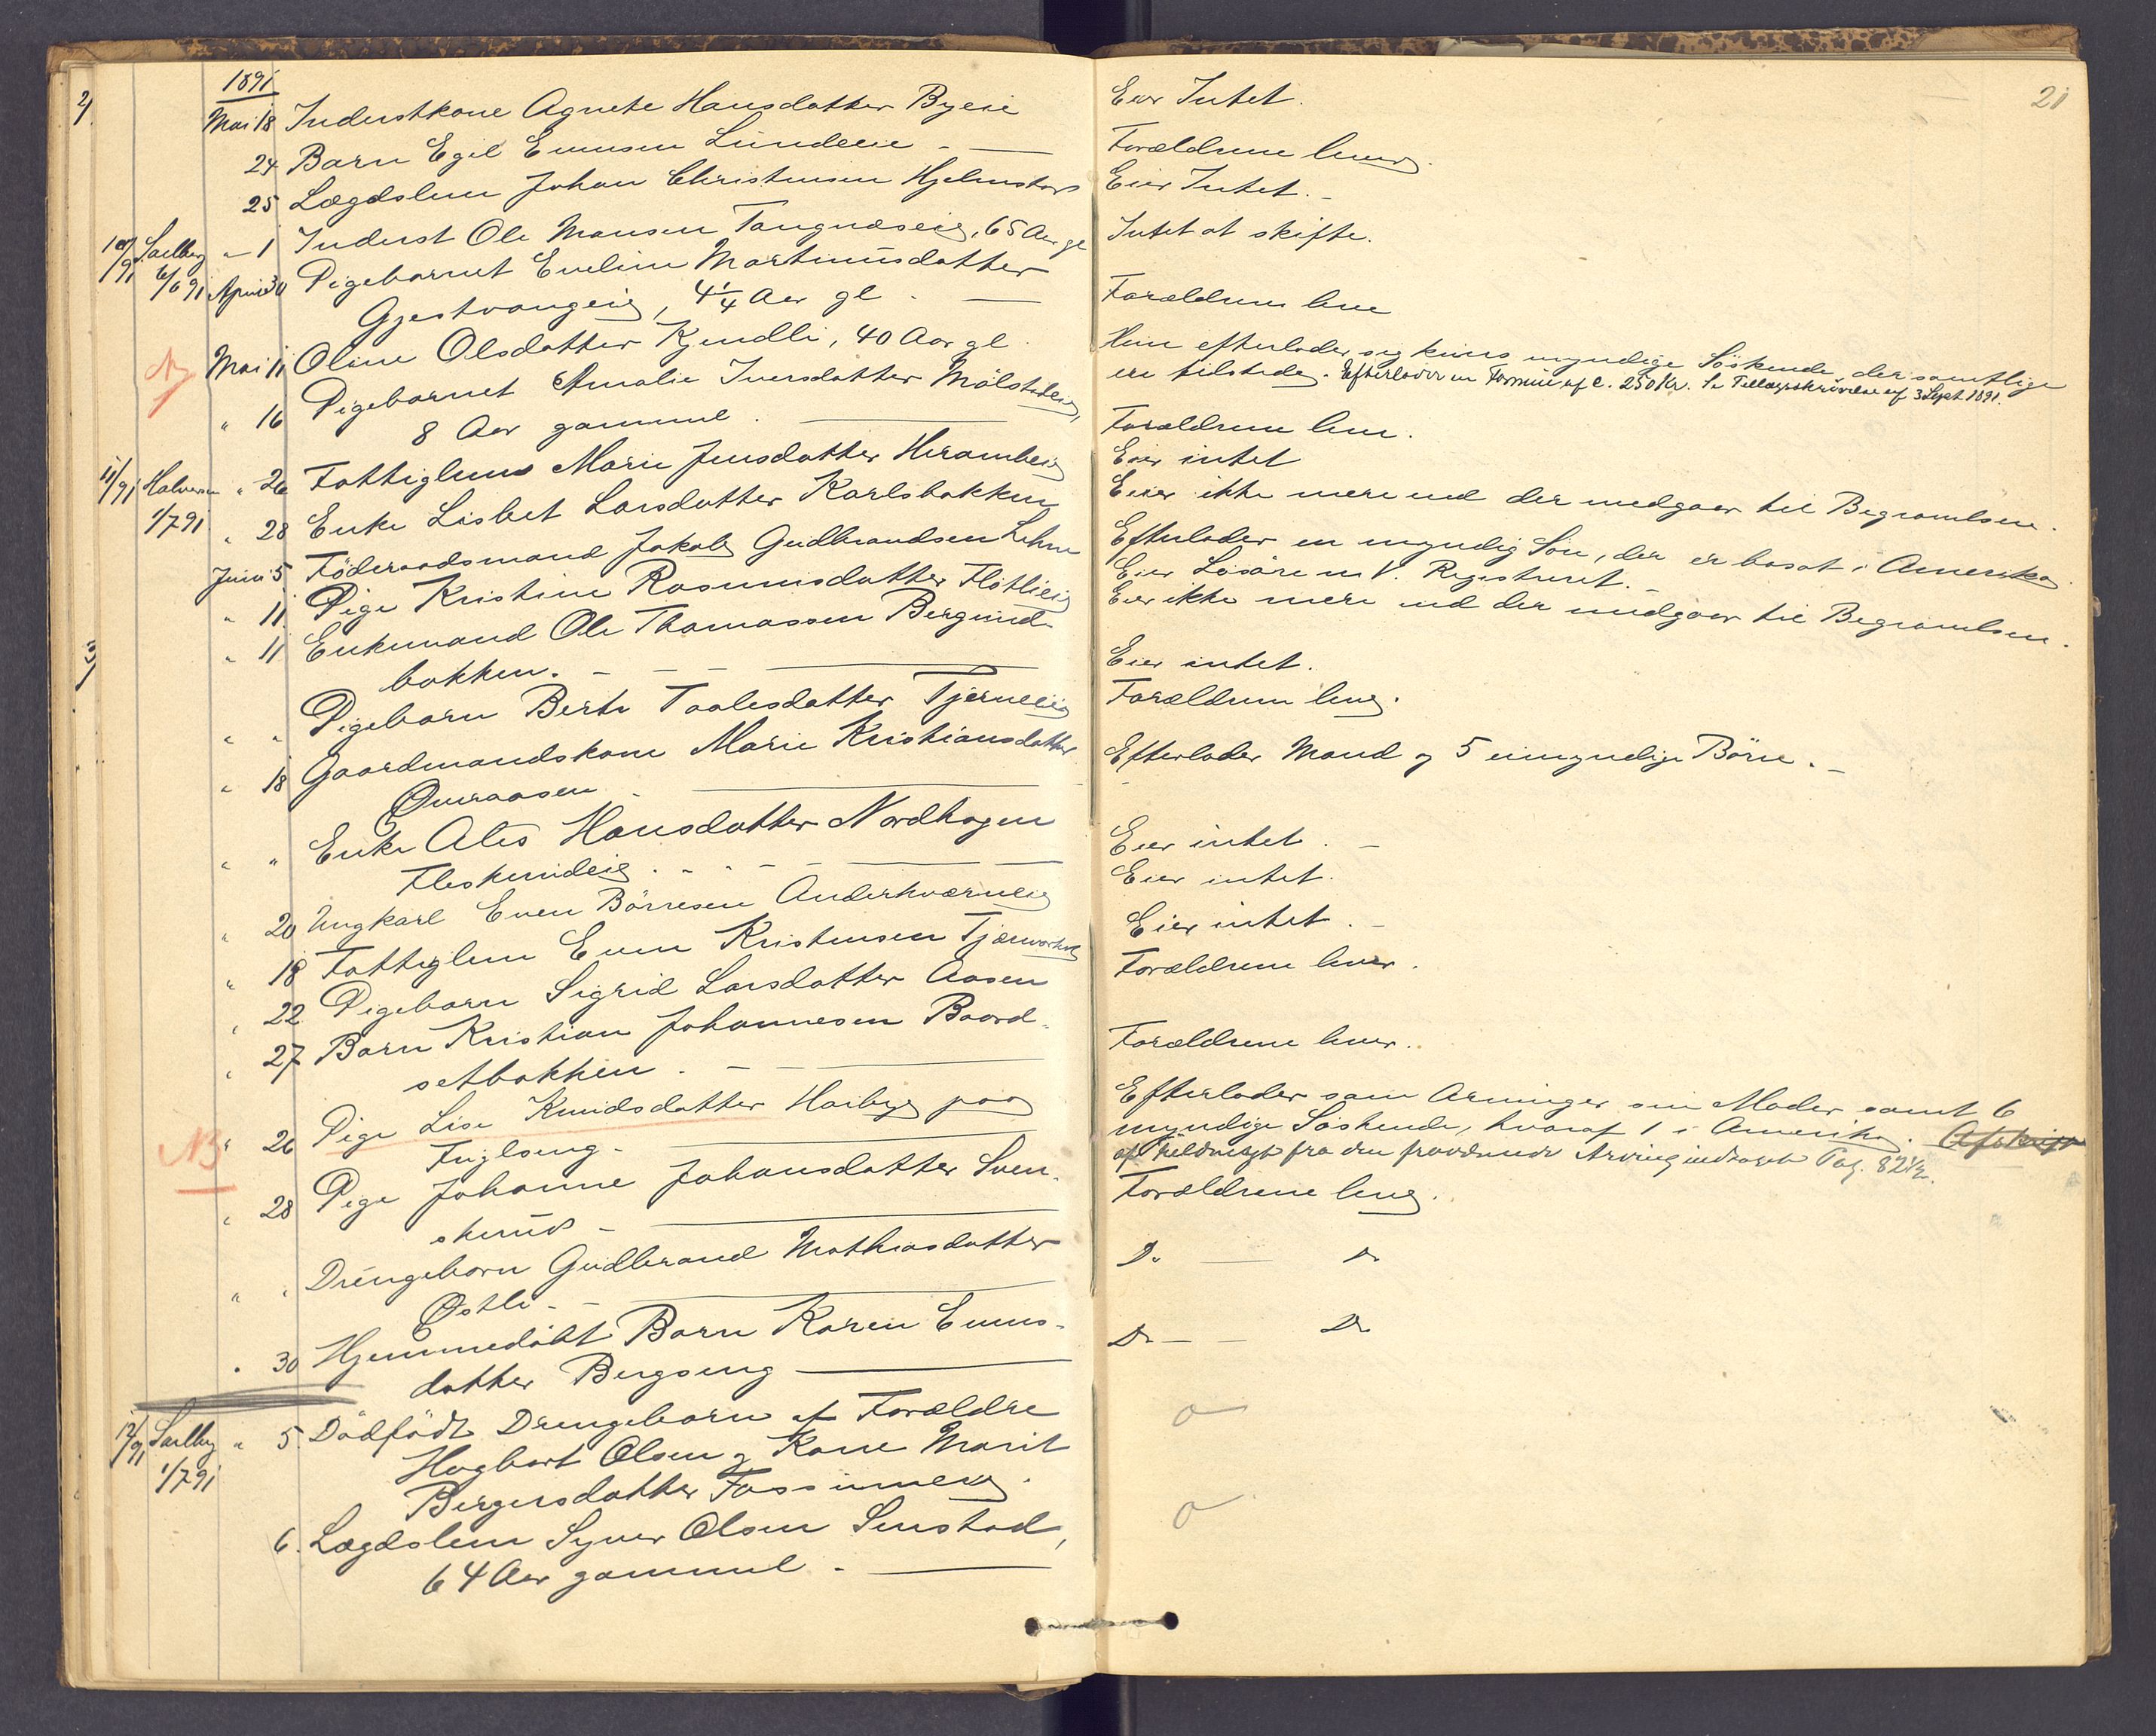 1891
21
Mai 18 Inderstkone Agnete Hansdatter Byeie Eier Intet.
24 Barn Egil Evensen Lundeeie - Forældrene lever.
25 Lægdslem Johan Christensen Hjelmstad Eier Intet.
10/91 Saelberg 6/6 91 " 1 Inderst Ole Mansen Tangnæseie, 65 Aar gl Intet at skifte.
April 30 Pigebarnet Eveline Martinusdatter
Gjestvangeie, 4 1/4 Aar gl. Forældrene leve
Mai 11 Oline Olsdatter Kjendli, 40 Aar gl. Hun efterlader sig kuns myndige Söskende, der samtlige
ere tilstede. Efterlader en Formue af c. 250 Kr. Se Tillægsskrivelse af 3 Sept 1891.
" 16 Pigebarnet Amalie Iversdatter Mölstadeie,
8 Aar gammel. Forældrene leve.
11/91 Halvorsen 1/7 91 " 26 Fattiglem Marie Jensdatter Eier intet
" 28 Enke Lisbet Larsdatter Karlsbakken Eier ikke mere end der medgaar til Begravelsen.
Juni 5 Föderaadsmand Jakob Gudbrandsen Lehne Efterlader en myndig Sön, der er bosat i Amerika.
" 11 Pige Kristine Rasmusdatter Flotlieie Eier Lösöre m. V. Registreret.
" 11 Enkemand Ole Thomassen Bergund- Eier ikke mere end der medgaar til Begravelsen.
bakken. - Eier intet.
" " Pigebarn Berte Paalesdatter Tjerneeie Forældrene leve.
" 18 Gaardmandskone Marie Kristiansdatter
Overaasen - Efterlader Mand og 5 umyndige Börn.
" " Enke Ales Hansdatter Nordhagen
Eier intet.
" 20 Ungkarl Even Börresen Anderkværneie Eier intet.
" 18 Fattiglem Even Kristensen Eier intet.
" 22 Pigebarn Sigrid Larsdatter Aasen Forældrene lever.
" 27 Barn Kristian Johannesen Baard-
setbakken. Forældrene lever.
NB " 26 Pige Lise Knudsdatter Harbye paa
Fuglseng - Efterlader som Arvinger sin Moder samt 6
myndige Söskende, hvoraf 1 i Amerika. Afskrift
af fra den Arving indtaget Pag. 82 1/2.
" 28 Pige Johanne Johansdatter Sven-
skerud - Forældrene leve.
" " Drengebarn Gudbrand Mathiasdatter
Østli - Do Do
" 30 Hjemmedöbt Barn Karen Evens-
datter Bergseng Do Do
12/91 Saelberg 1/7 91 " 5. Dödfödt Drengebarn af Forældre
Hagbart Olsen og Kone Marit
Bergersdatter
6. Lægdslem Syver Olsen Senstad,
64 Aar gammel -